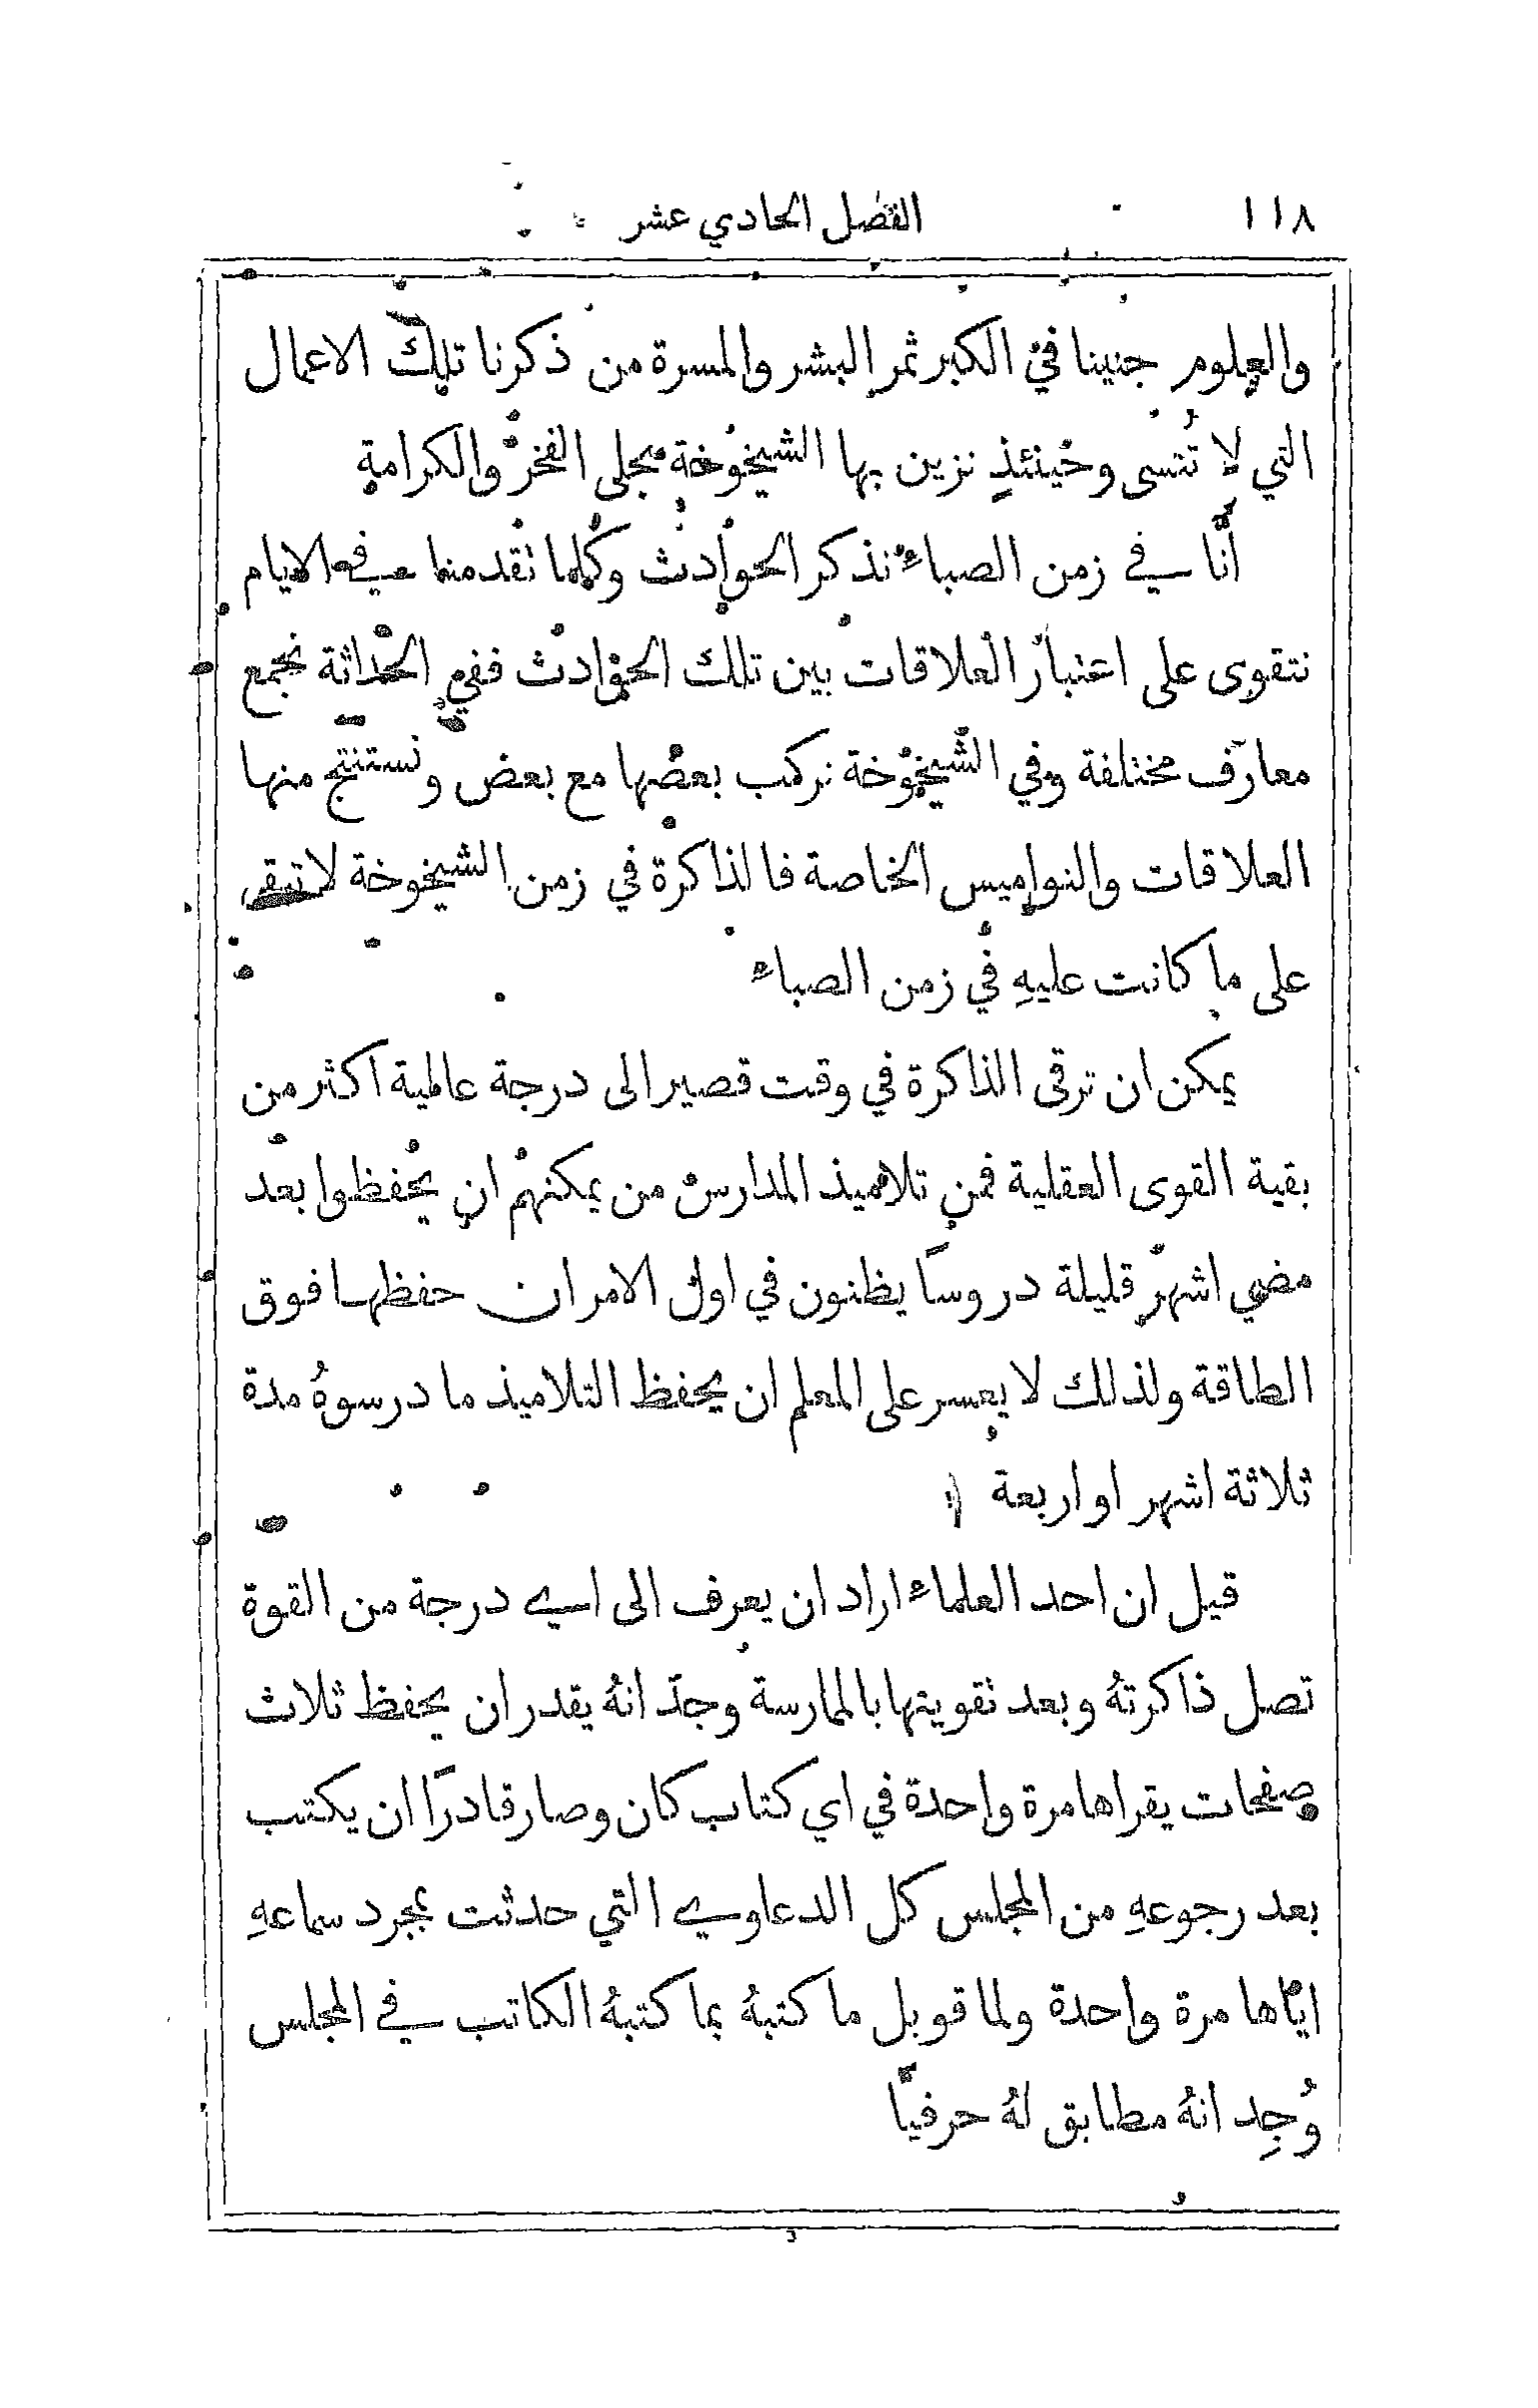 ١١٨ الفصل الحادي عشر
والعلوم جنينا في الكبر ثمر البشر والمسرة من ذكرنا تلك الاعمال
التي لا تُنسى وحينئذٍ نزين بها الشيخوخة بحلى الفخر والكرامة
أنَّا في زمن الصباء نذكر الحوادث وكلما نقدمنا في الايام
نتقوى على اعتبار العلاقات بين تلك الحوادث ففي الحداثة نجمع
معارف مختلفة وفي الشيخوخة نركب بعضها مع بعض ونستنتج منها
العلاقات والنواميس الخاصة فالذاكرة في زمن الشيخوخة لا تبقى
على ما كانت عليهِ في زمن الصباء
يمكن ان ترقى الذاكرة في وقت قصير الى درجة عالمية اكثر من
بقية القوى العقلية فمن تلاميذ المدارس من يمكنهم ان يحفظوا بعد
مضي اشهر قليلة دروسًا يظنون في اول الامر ان حفظها فوق
الطاقة ولذلك لا يعسر على المعلم ان يحفظ التلاميذ ما درسوهُ مدة
ثلاثة اشهر او اربعة
قيل ان احد العلماء اراد ان يعرف الى اي درجة من القوة
تصل ذاكرتهُ وبعد نقويتها بالممارسة وجد انهُ يقدر ان يحفظ ثلاث
صفحات يقراها مرة واحدة في اي كتاب كان وصار قادرًا ان يكتب
بعد رجوعهِ من المجلس كل الدعاوي التي حدثت بمجرد سماعهِ
ايَّاها مرة واحدة ولما قوبل ما كتبهُ بما كتبهُ الكاتب في المجلس
وُجِد انهُ مطابق لهُ حرفيًّا